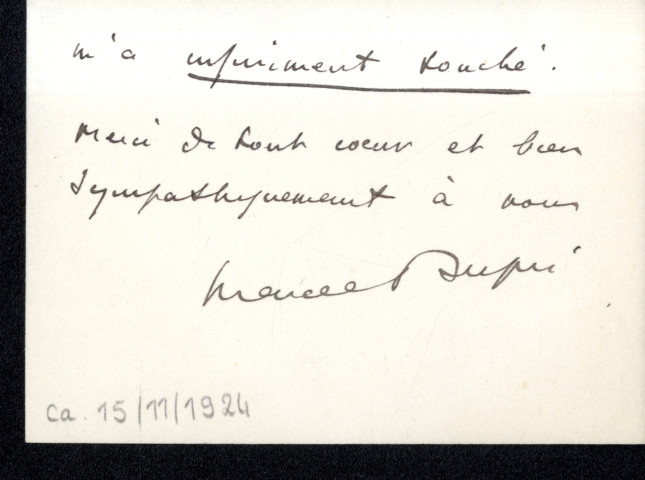 m'a infiniment touché.
Merci de tout coeur et bien
sympathiquement à vous
Marcel Dupré
ca. 15/11/1924